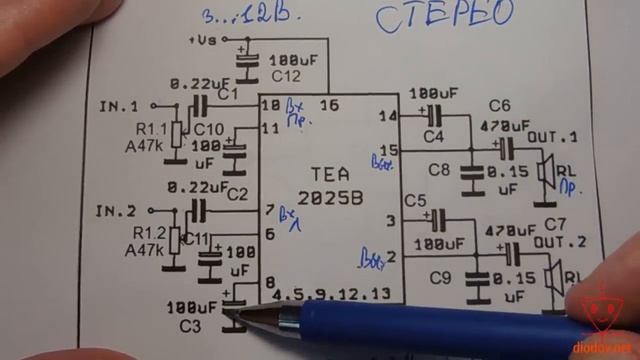 3...12В.
СТЕРЕО
+Vs
100uF
C12
0.22uF
C1
IN.1
R1.1
A47k
C10
100
uF
10
Вх
Пр.
11
16
TEA
2025B
14
15
Вых
100uF
C4
C6
470uF
OUT.1
C8
0.15
uF
RL
Пр.
0.22uF
C2
IN.2
R1.2
A47k
C11
100
uF
7
Вх
Л
6
8
100uF
C3
4,5,9,12,13
3
2
Вых
C5
100uF
C7
470uF
OUT.2
C9
0.15
uF
RL
diodov.net